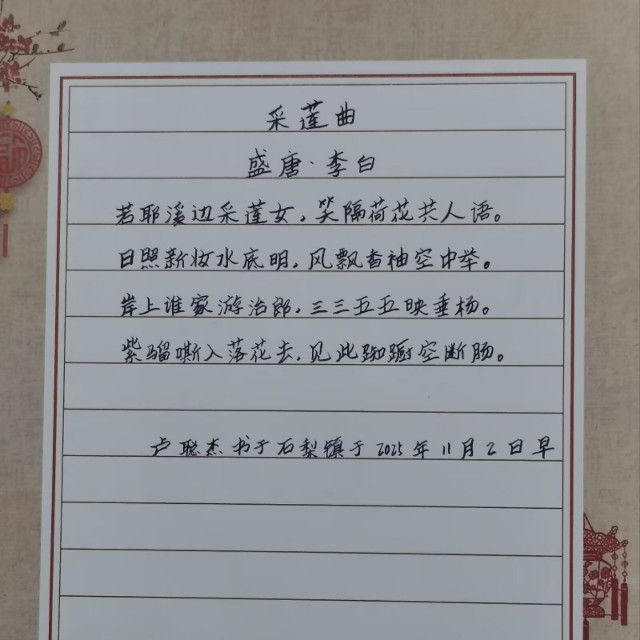 采莲曲
盛唐·李白
若耶溪边采莲女，笑隔荷花共人语。
日照新妆水底明，风飘香袖空中举。
岸上谁家游冶郎，三三五五映垂杨。
紫骝嘶入落花去，见此踟蹰空断肠。
卢聪杰书于石梨镇于2025年11月2日早